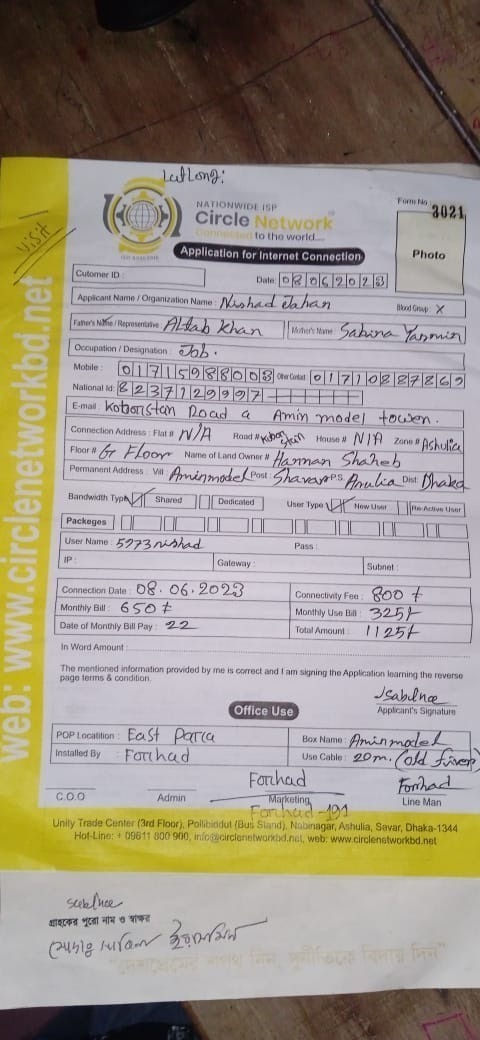 LatLong:
Visit
NATIONWIDE ISP
Circle Network
Connected to the world....
Form No. 3021
Photo
Application for Internet Connection
Cutomer ID :
Date: 08062023
Applicant Name / Organization Name : Nishad Jahan Blood Group: X
Father's Name / Representative : Altab Khan Mother's Name : Sabina Yasmin
Occupation / Designation : Job.
Mobile : 01715988003 Other Contact 01710887869
National Id: 8237129997
E-mail : Kobonstan Road a Amin model towen.
Connection Address : Flat # N/A Road # Kobon Stan House # N/A Zone # Ashulia
Floor # G Floor Name of Land Owner # Hannan Shaheb
Permanent Address : Vill Aminmodel Post : Shavar P.S. Ashulia Dist: Dhaka
Bandwidth Type Shared Dedicated User Type New User Re-Active User
Packeges
User Name : 5973nishad Pass :
IP : Gateway : Subnet :
Connection Date : 08.06.2023 Connectivity Fee : 800 t
Monthly Bill : 650 t Monthly Use Bill : 325t
Date of Monthly Bill Pay : 22 Total Amount : 1125t
In Word Amount :
The mentioned information provided by me is correct and I am signing the Application learning the reverse
page terms & condition.
Applicant's Signature
Office Use
POP Locatition : East Parra Box Name : Aminmodel
Installed By : Forhad Use Cable : 20m. (old fiver)
Forhad Forhad
C.O.O Admin Marketing Line Man
Forhad-191
Unity Trade Center (3rd Floor), Pollibiddut (Bus Stand), Nabinagar, Ashulia, Savar, Dhaka-1344
Hot-Line: + 09611 800 900, info@circlenetworkbd.net, web: www.circlenetworkbd.net
web: www.circlenetworkbd.net
গ্রাহকের পুরো নাম ও স্বাক্ষর
"দেশপ্রেমের শপথ নিন, দুর্নীতিকে বিদায় দিন"